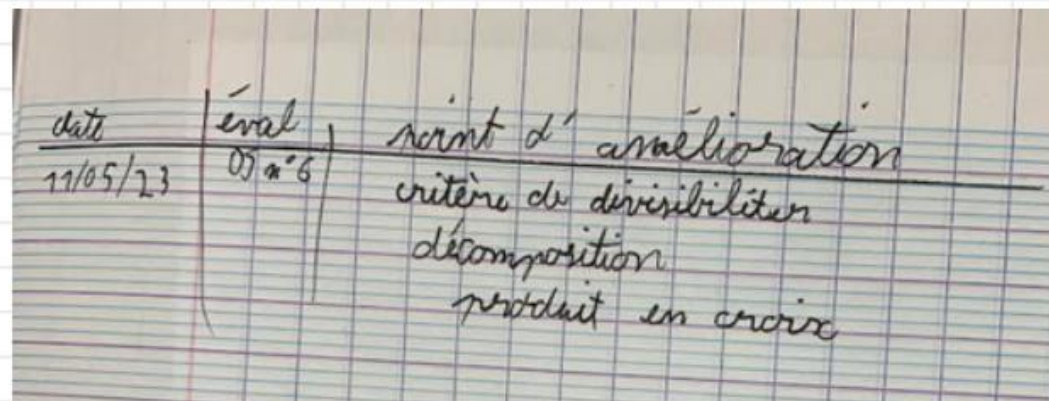 date éval point d'amélioration
11/05/23 05 n°6 critère de divisibiliter
décomposition
produit en croix